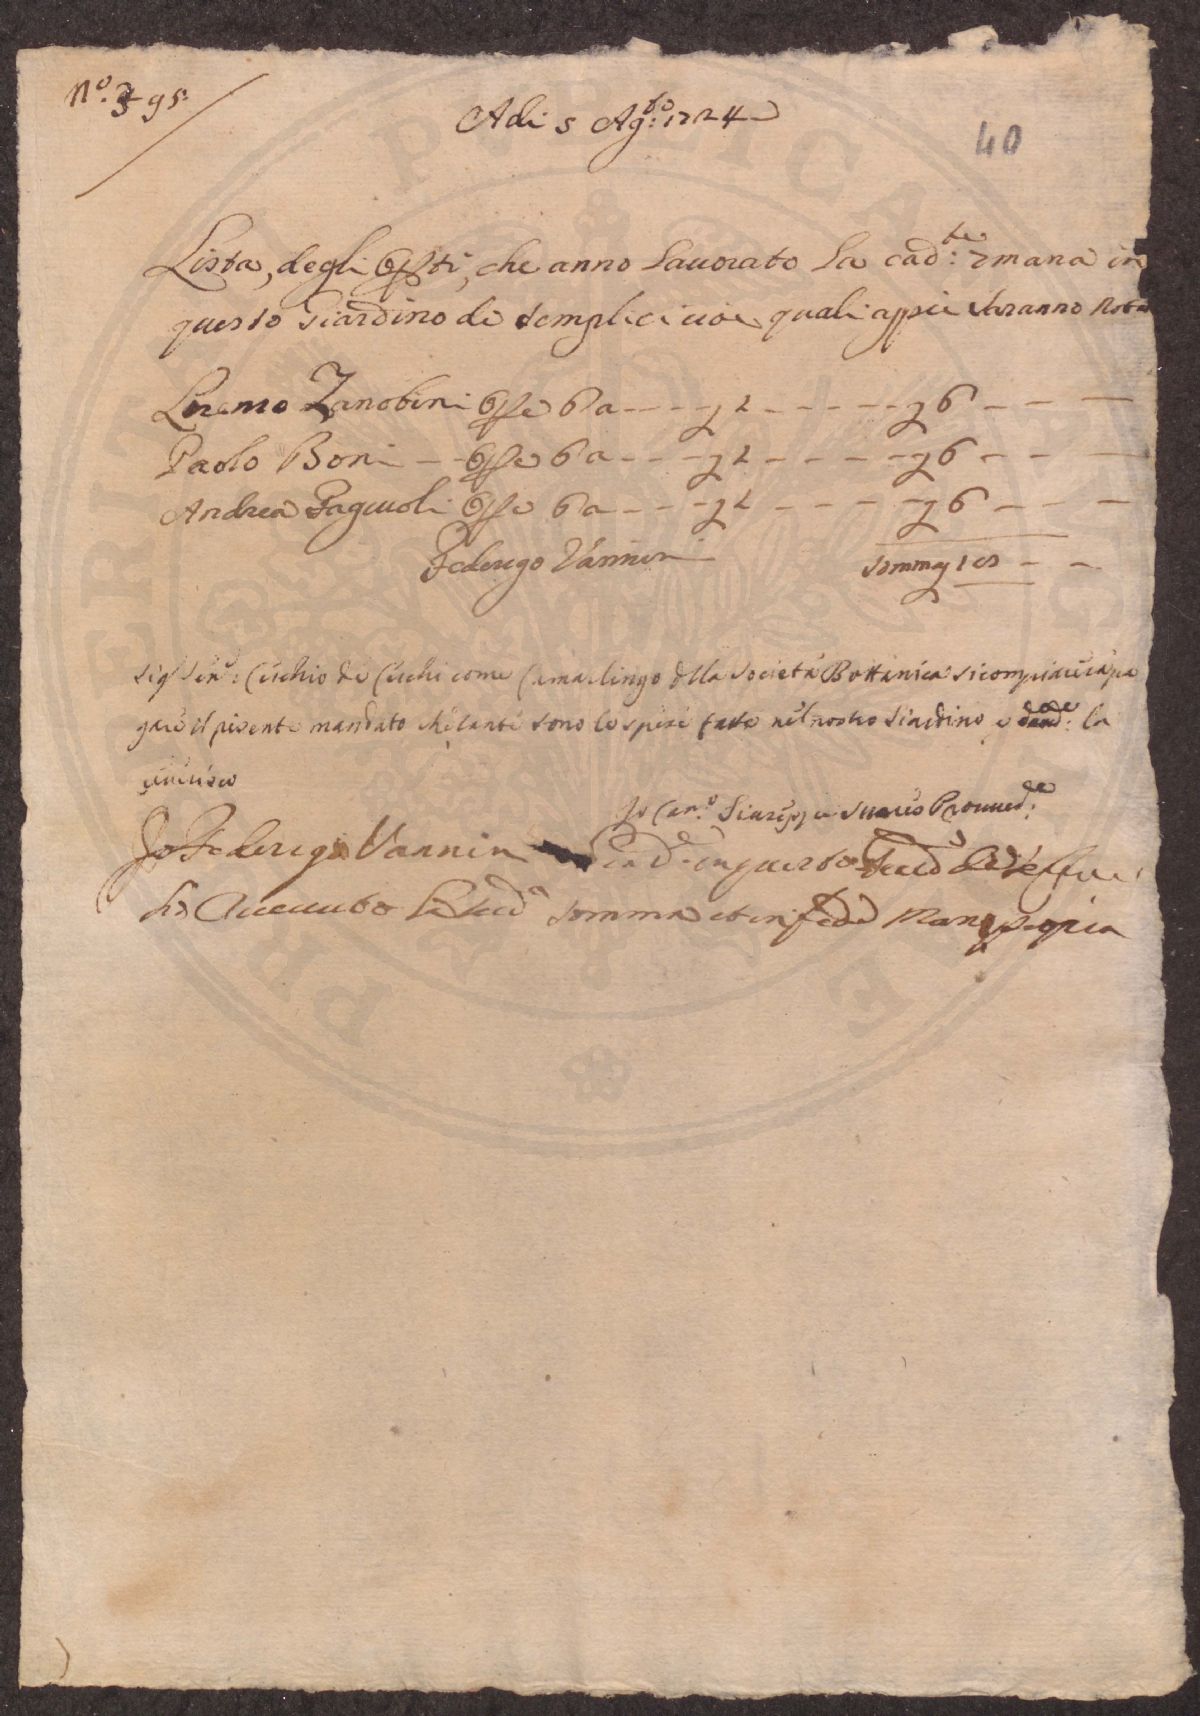 N.º 395
Adi 5 Ag:to 1724
40
Lista, degli Opti, che anno lauorato la cad:te zmana in
questo Giardino de Semplici cioe quali appie saranno Nota
Lorenzo Zanobini Opre 6 a --- g 2 ----- g 6 ---
Paolo Boni -- Opre 6 a --- g 2 ----- g 6 ---
Andrea Fagiuoli Opre 6 a --- g 2 ----- g 6 ---
Federigo Vannini
Somma g 18 --
Sig.r Cecchio de Cecchi come Camarlingo della Società Bottanica si compiacerà pa
gare il presente mandato che tanti sono le spese fatte nel nostro Giardino e la
Io Can.o Giuseppe Suares Proued:re
Io Federigo Vannini in questo
ho Riceuuto la somma et in fede Man propria